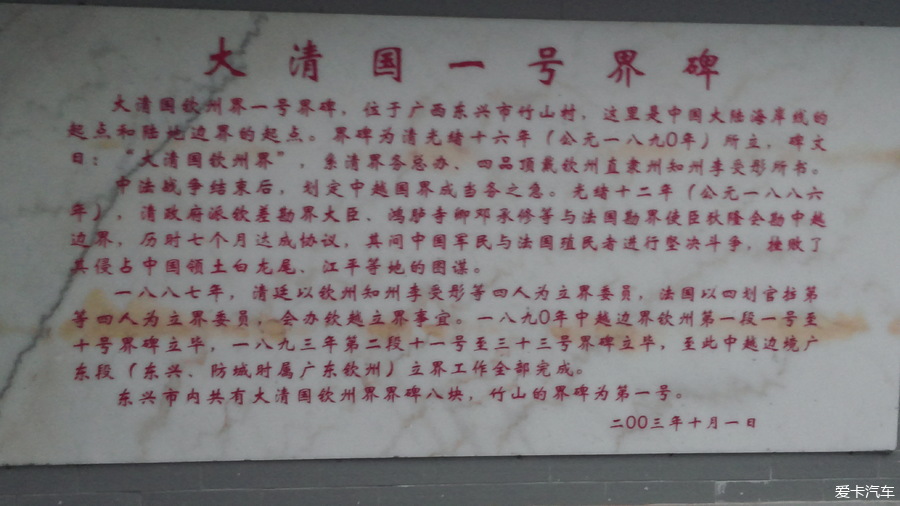 大清国一号界碑
大清国钦州界一号界碑，位于广西东兴市竹山村，这里是中国大陆海岸线的
起点和陆地边界的起点。界碑为清光绪十六年（公元一八九0年）所立，碑文
曰：“大清国钦州界”，系清界务总办、四品顶戴钦州直隶州知州李受彤所书。
中法战争结束后，划定中越国界成当务之急。光绪十二年（公元一八八六
年），清政府派钦差勘界大臣、鸿胪寺卿邓承修等与法国勘界使臣狄隆会勘中越
边界，历时七个月达成协议，其间中国军民与法国殖民者进行坚决斗争，挫败了
其侵占中国领土白龙尾、江平等地的图谋。
一八八七年，清廷以钦州知州李受彤等四人为立界委员，法国以四划官拉第
等四人为立界委员，会办钦越立界事宜。一八九0年中越边界钦州第一段一号至
十号界碑立毕，一八九三年第二段十一号至三十三号界碑立毕，至此中越边境广
东段（东兴、防城时属广东钦州）立界工作全部完成。
东兴市内共有大清国钦州界界碑八块，竹山的界碑为第一号。
二00三年十月一日
爱卡汽车